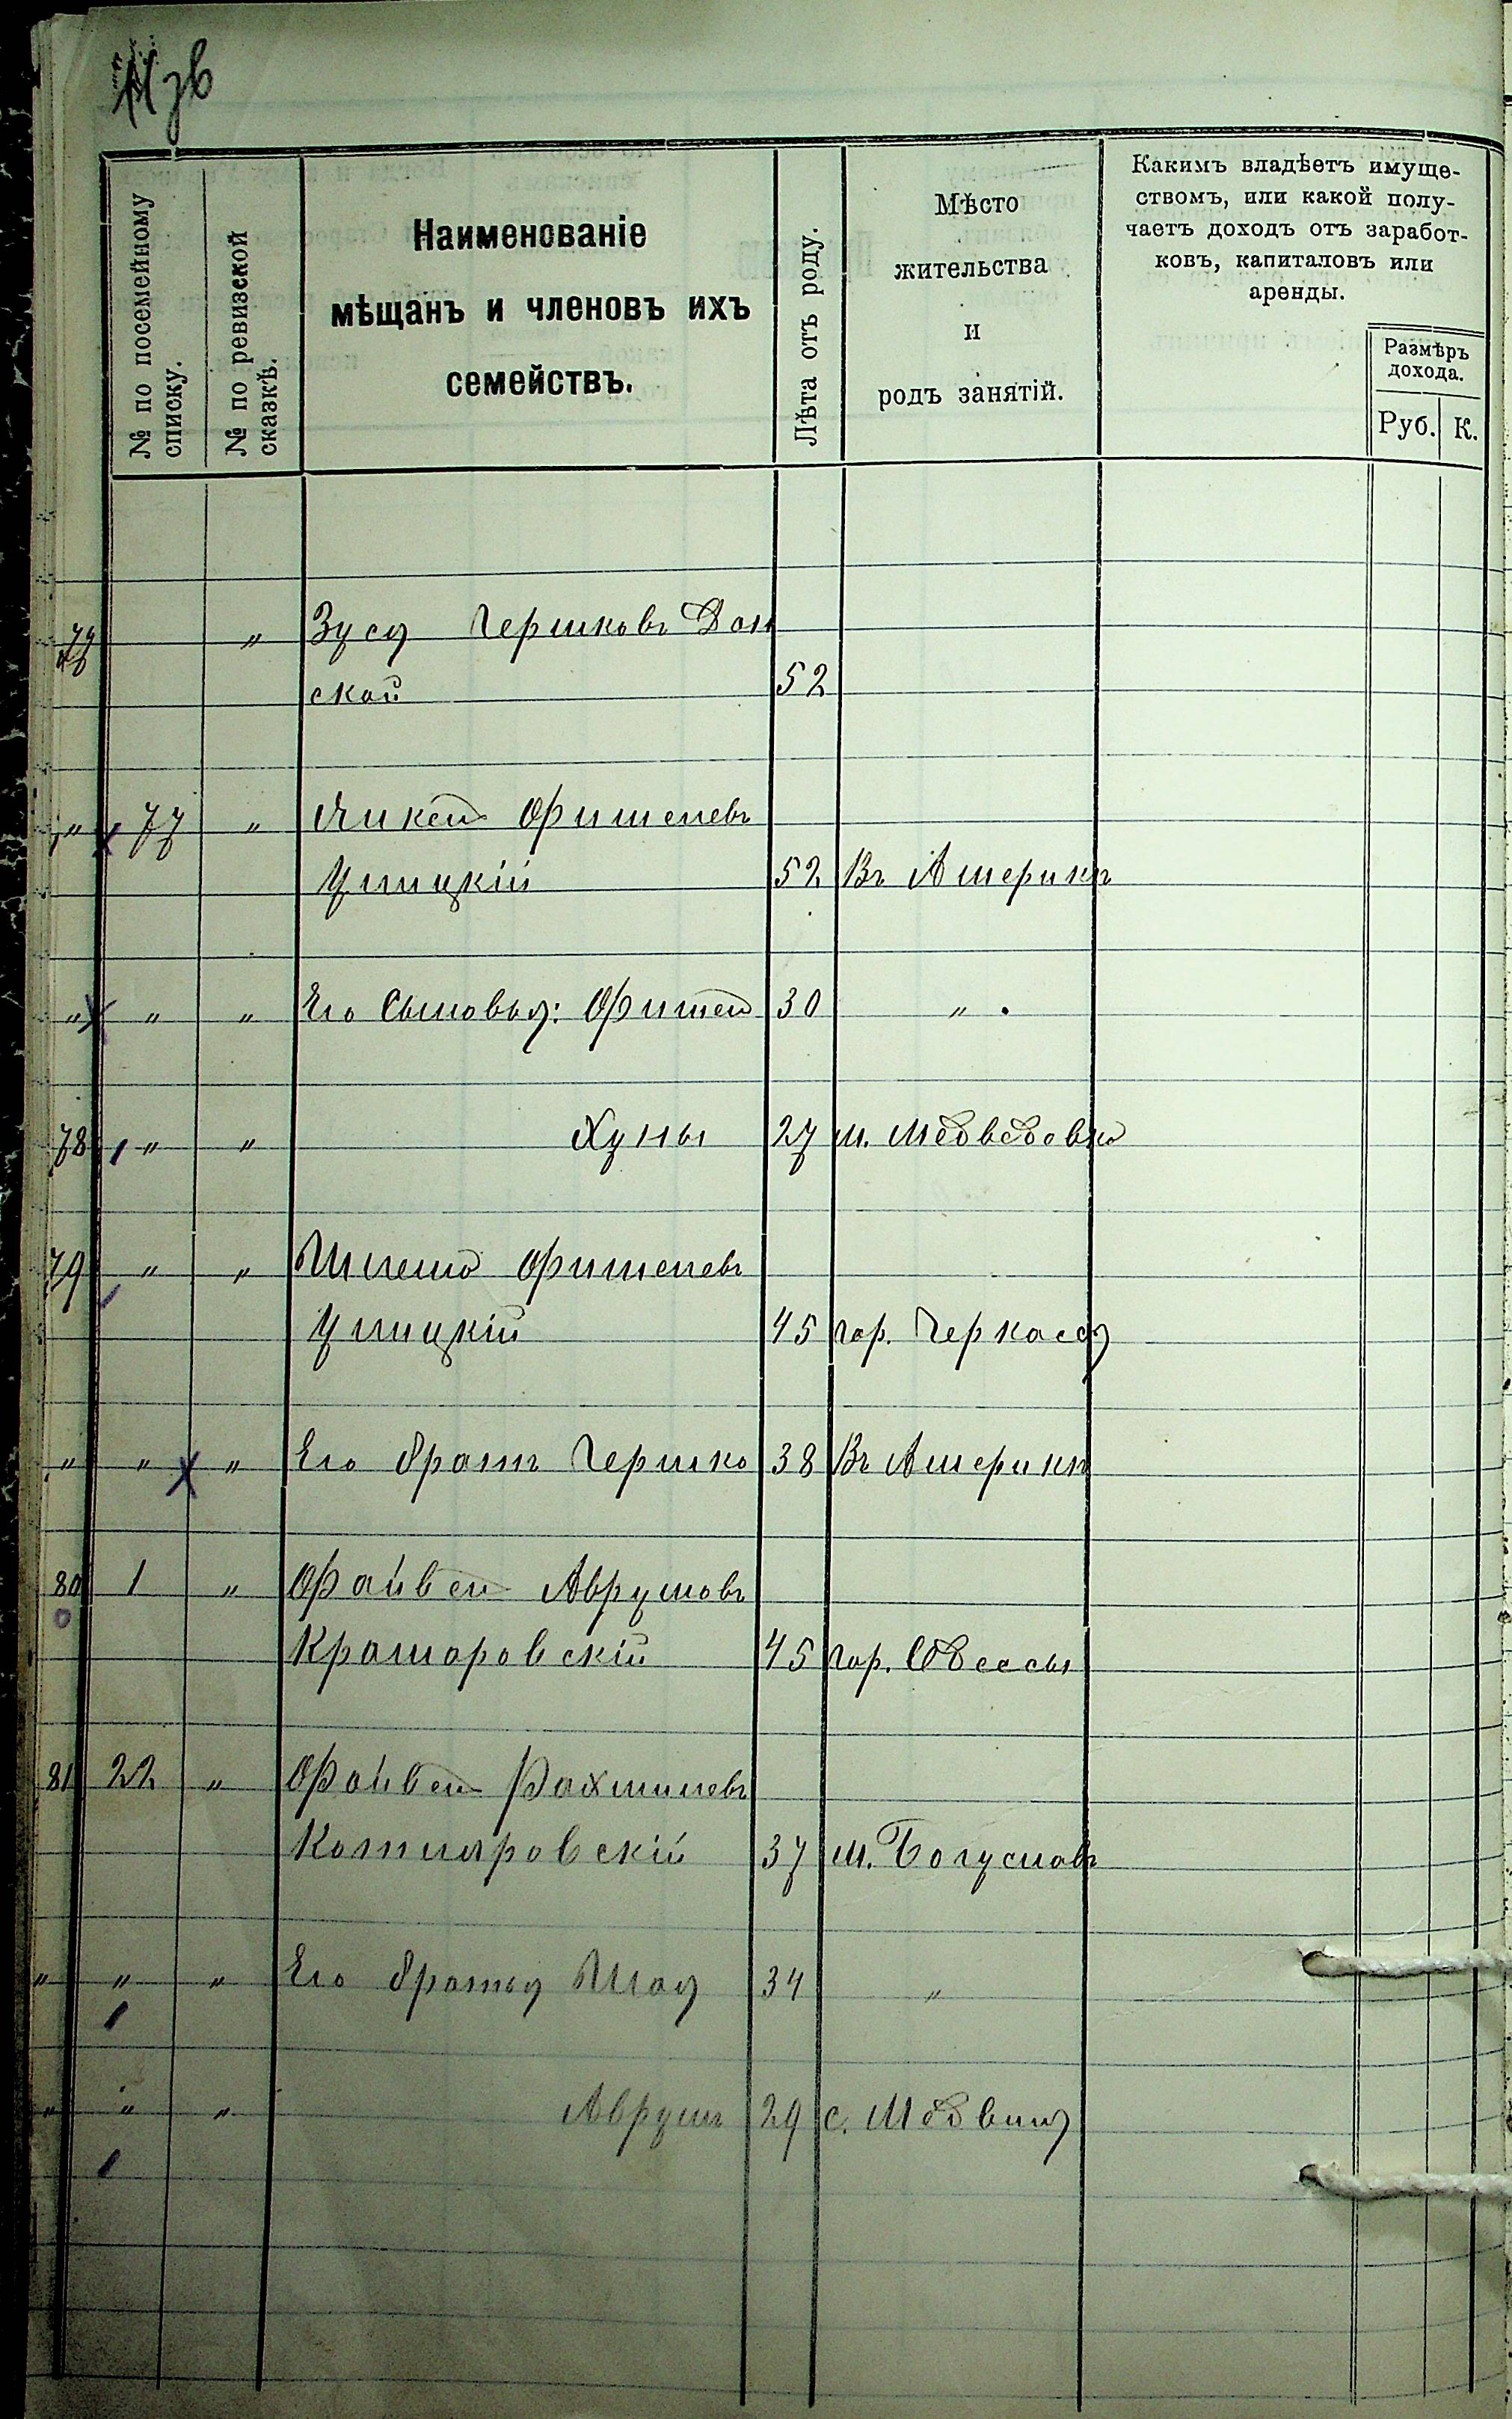 № по посемейному списку.
№ по ревизской сказкѣ.
Наименованіе
мѣщанъ и членовъ ихъ
семействъ.
Лѣта отъ роду.
Мѣсто
жительства
и
родъ занятій.
Какимъ владѣетъ имуще-
ствомъ, или какой полу-
чаетъ доходъ отъ заработ-
ковъ, капиталовъ или
аренды.
Размѣръ
дохода.
Руб. К.
" Зуся Гершковъ Дон
ской 52
" 77 " Айкель Фишелевъ
Улицкій 52 Въ Америкѣ
" " " Его сыновья: Фишель 30 "
78 " " Хуны 27 м. Медведовка
79 " " Шлема Фишелевъ
Улицкій 45 гор. Черкассы
" " " Его братъ Гершко 38 Въ Америкѣ
80 1 " Файвель Аврумовъ
Крамаровскій 45 гор. Одессы
81 22 " Файвель Рахмилевъ
Котляровскій 37 м. Богуславъ
" " " Его братья Шая 34 "
" " " Аврумъ 29 с. Медвинъ